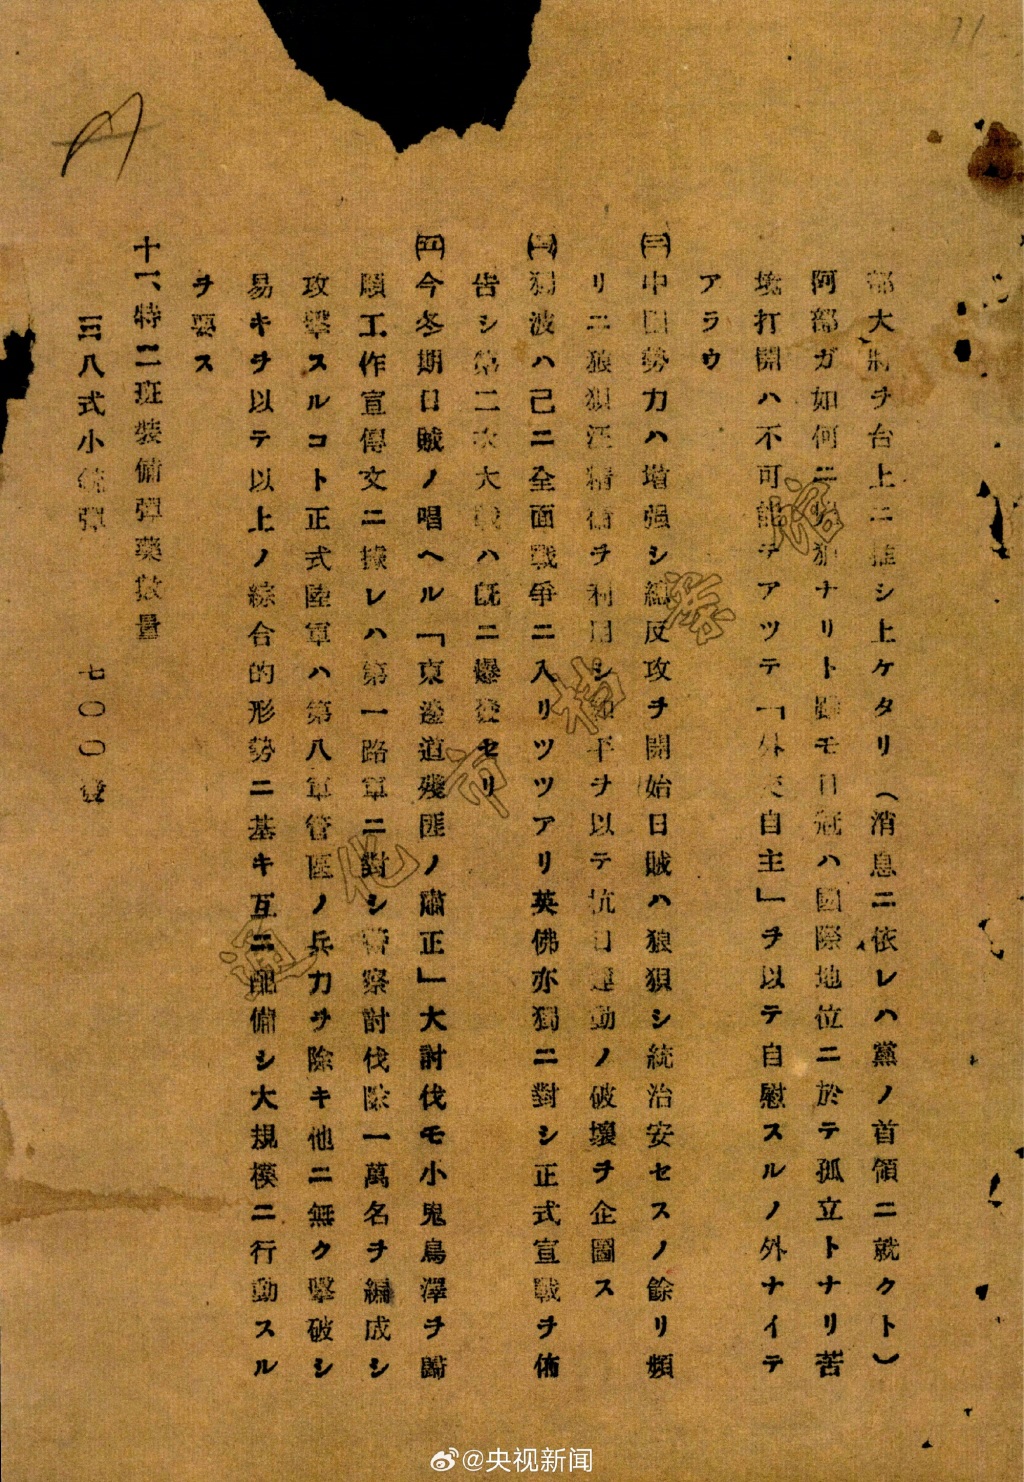 部大將ヲ台上ニ推シ上ケタリ（消息ニ依レハ黨ノ首領ニ就クト）
阿部ガ如何ニ ナリト雖モ日冠ハ國際地位ニ於テ孤立トナリ苦
境打開ハ不可能デアツテ「外交自主」ヲ以テ自慰スルノ外ナイデ
アラウ
㈢中國勢力ハ増强シ總反攻ヲ開始日賊ハ狼狽シ統治安セスノ餘リ頻
リニ狼狽汪精衛ヲ利用シ和平ヲ以テ抗日運動ノ破壞ヲ企圖ス
獨波ハ己ニ全面戰爭ニ入リツツアリ英佛亦獨ニ對シ正式宣戰ヲ佈
告シ第二次大戰ハ既ニ爆發セリ
㈤今冬期日賊ノ唱ヘル「東邊道殘匪ノ肅正」大討伐モ小鬼鳥澤ヲ歸
順工作宣傳文ニ據レハ第一路軍ニ對シ警察討伐隊一萬名ヲ編成シ
攻擊スルコト正式陸軍ハ第八軍管區ノ兵力ヲ除キ他ニ無ク擊破シ
易キヲ以テ以上ノ綜合的形勢ニ基キ互ニ配備シ大規模ニ行動スル
ヲ要ス
十一、特二班裝備彈藥數量
三八式小銃彈 七〇〇發
通化市档案
@央视新闻